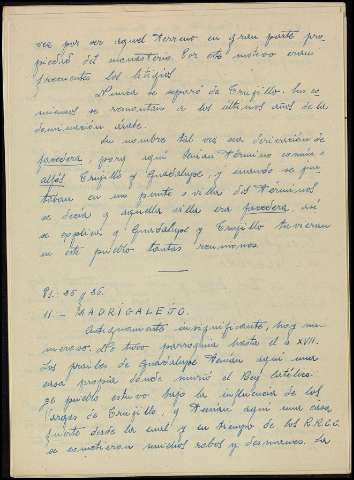 vez por ser aquel terreno en gran parte pro
piedad del monasterio. Por este motivo eran
frecuentes los litigios.
Nunca se separó de Trujillo. Sus co
mienzos se remontan a los últimos años de la
dominación árabe.
Su nombre tal vez sea derivación de
facedera, porq aquí tenían término común o
alfós Trujillo y Guadalupe, y cuando se jun
taban en un punto o villa dos términos
se decía q aquella villa era facedera. así
se explica q Guadalupe y Trujillo tuvieran
en este pueblo tantas reuniones.
Pg. 35 y 36.
11.- MADRIGALEJO.
Antiguamente insignificante, hoy nu
meroso. No tuvo parroquia hasta el s. XVII.
Los frailes de Guadalupe tenían aquí una
casa propia donde murió el Rey Católico.
Este pueblo estuvo bajo la influencia de los
Vargas de Trujillo, q tenían aquí una casa
fuerte desde la cual y en tiempo de los R.R.C.C.
se cometieron muchos robos y desmanes. La